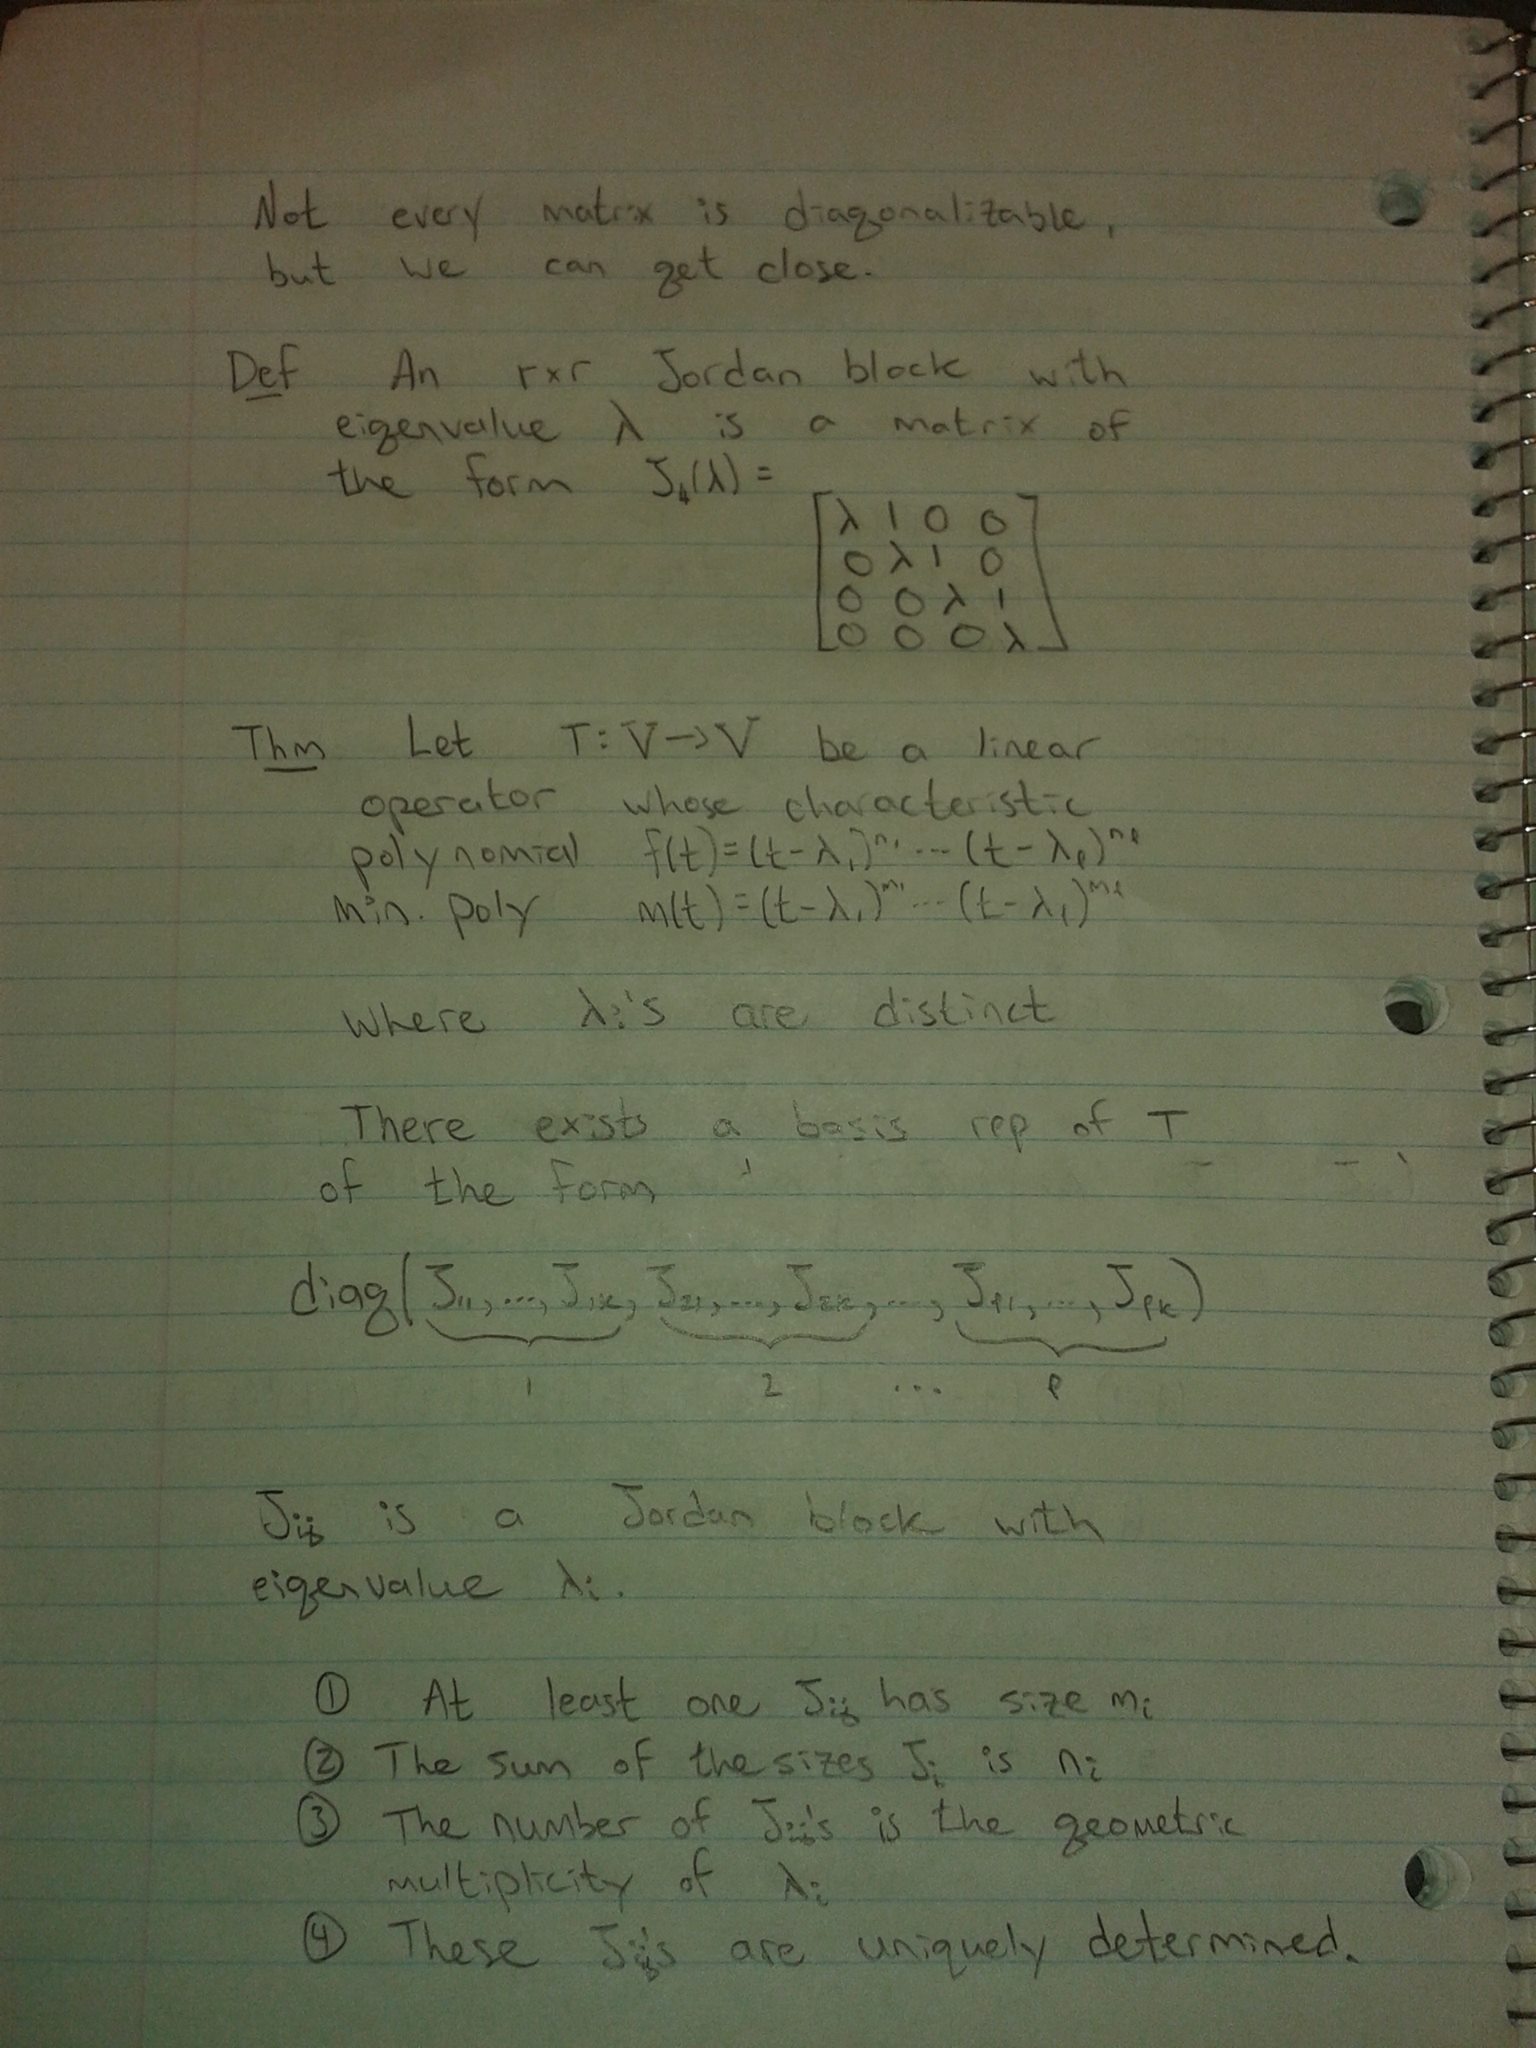 Not every matrix is diagonalizable,
but we can get close.
Def An r×r Jordan block with
eigenvalue λ is a matrix of
the form J₄(λ) =
[λ 1 0 0
0 λ 1 0
0 0 λ 1
0 0 0 λ]
Thm Let T: V → V be a linear
operator whose characteristic
polynomial f(t) = (t-λ₁)^n₁ ... (t-λₚ)^nₚ
min. poly m(t) = (t-λ₁)^m₁ ... (t-λₚ)^mₚ
where λᵢ's are distinct
There exists a basis rep of T
of the form
diag(J₁₁, ..., J₁ₖ, J₂₁, ..., J₂ₖ, ..., Jₚ₁, ..., Jₚₖ)
1 2 ... p
Jᵢⱼ is a Jordan block with
eigenvalue λᵢ.
① At least one Jᵢⱼ has size mᵢ
② The sum of the sizes Jᵢ is nᵢ
③ The number of Jᵢⱼ's is the geometric
multiplicity of λᵢ
④ These Jᵢⱼ's are uniquely determined.